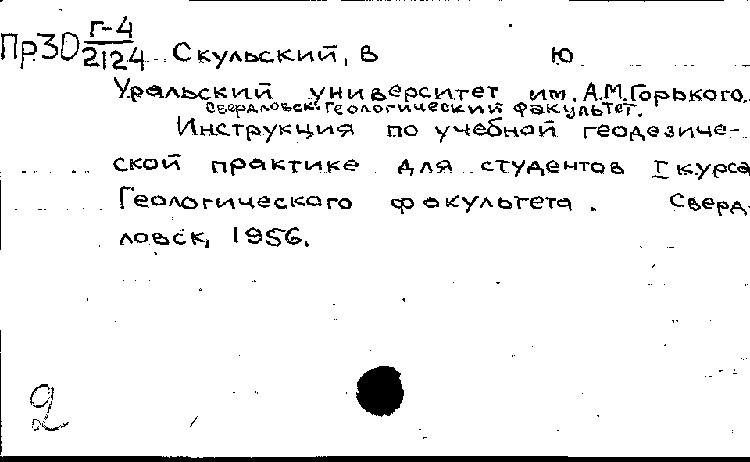 Пр30 Г-4/2124 Скульский, В Ю
Уральский университет им. А.М.Горького.
Свердловск. Геологический факультет.
Инструкция по учебной геодезиче-
ской практике для студентов I курса
Геологического факультета. Сверд-
ловск, 1956.
2